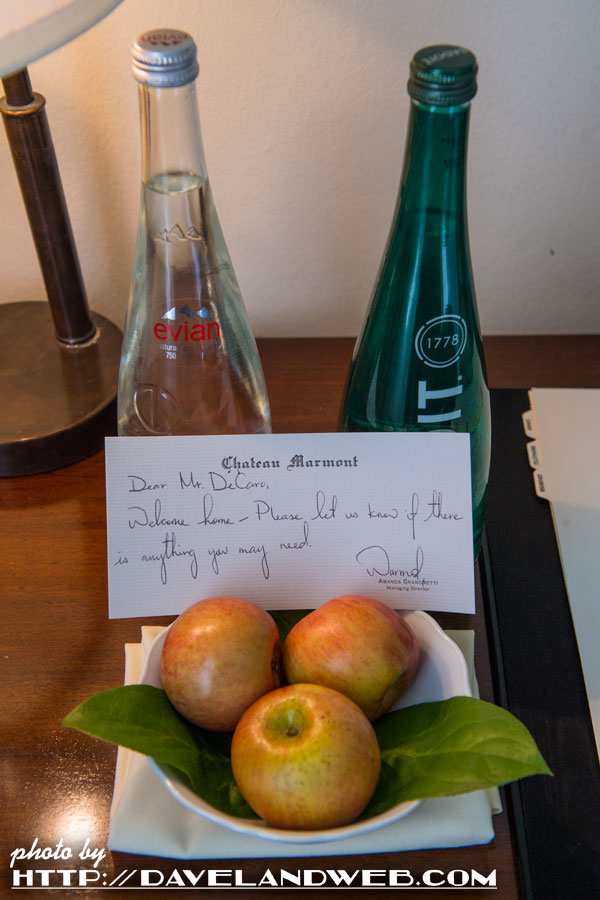 evian
evian
750
1778
IT.
Chateau Marmont
Dear Mr. DeCaro,
Welcome home – Please let us know if there
is anything you may need.
Managing Director
photo by
HTTP://DAVELANDWEB.COM